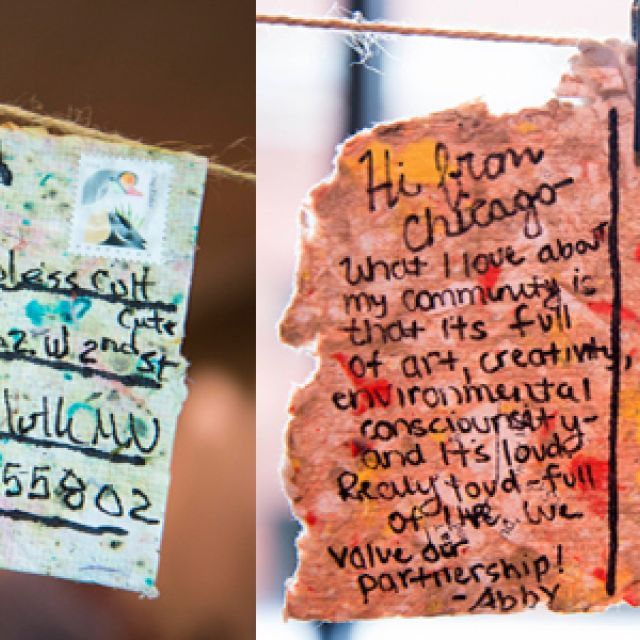 Cott
Cute
W 2nd St
MN
55802
Hi from
Chicago-
What I love about
my community is
that its full
of art, creativity,
environmental
consciousity-
and it's loud
Really loud-full
of life. We
value our
partnership!
- Abby